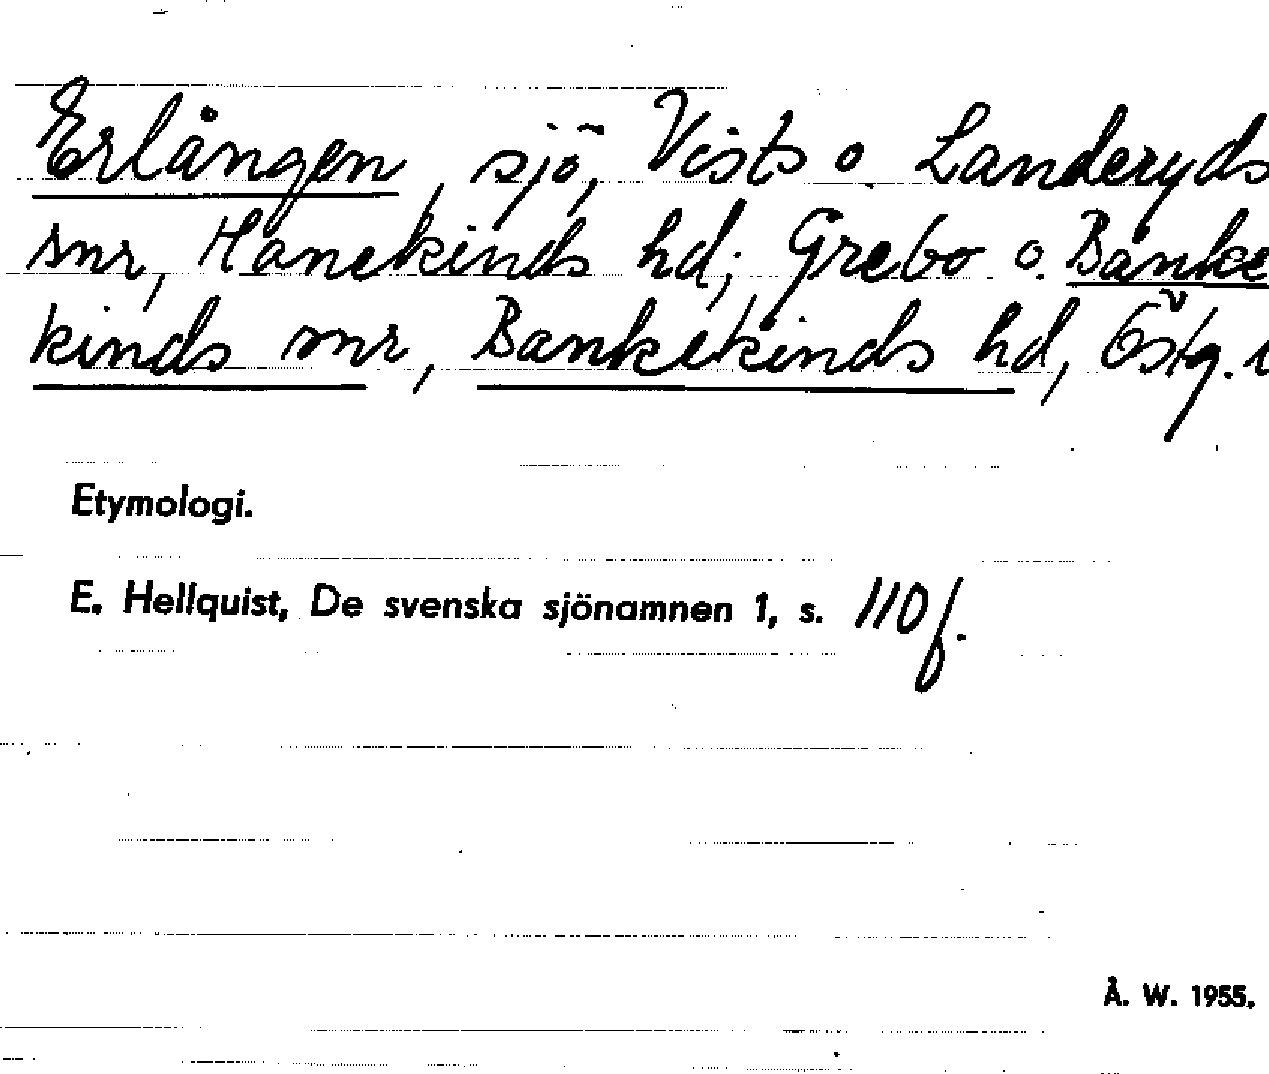 Erlången, sjö, Vists o. Landeryds
snr, Hanekinds hd; Grebo o. Banke
kinds snr, Bankekinds hd, Östg.
Etymologi.
E. Hellquist, De svenska sjönamnen 1, s. 110 f.
Å. W. 1955.